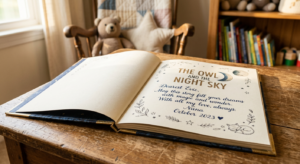 THE OWL
AND THE
NIGHT SKY
Dearest Evie,
May this story fill your dreams
with magic and wonder.
With all my love, always,
Nana.
October 2023